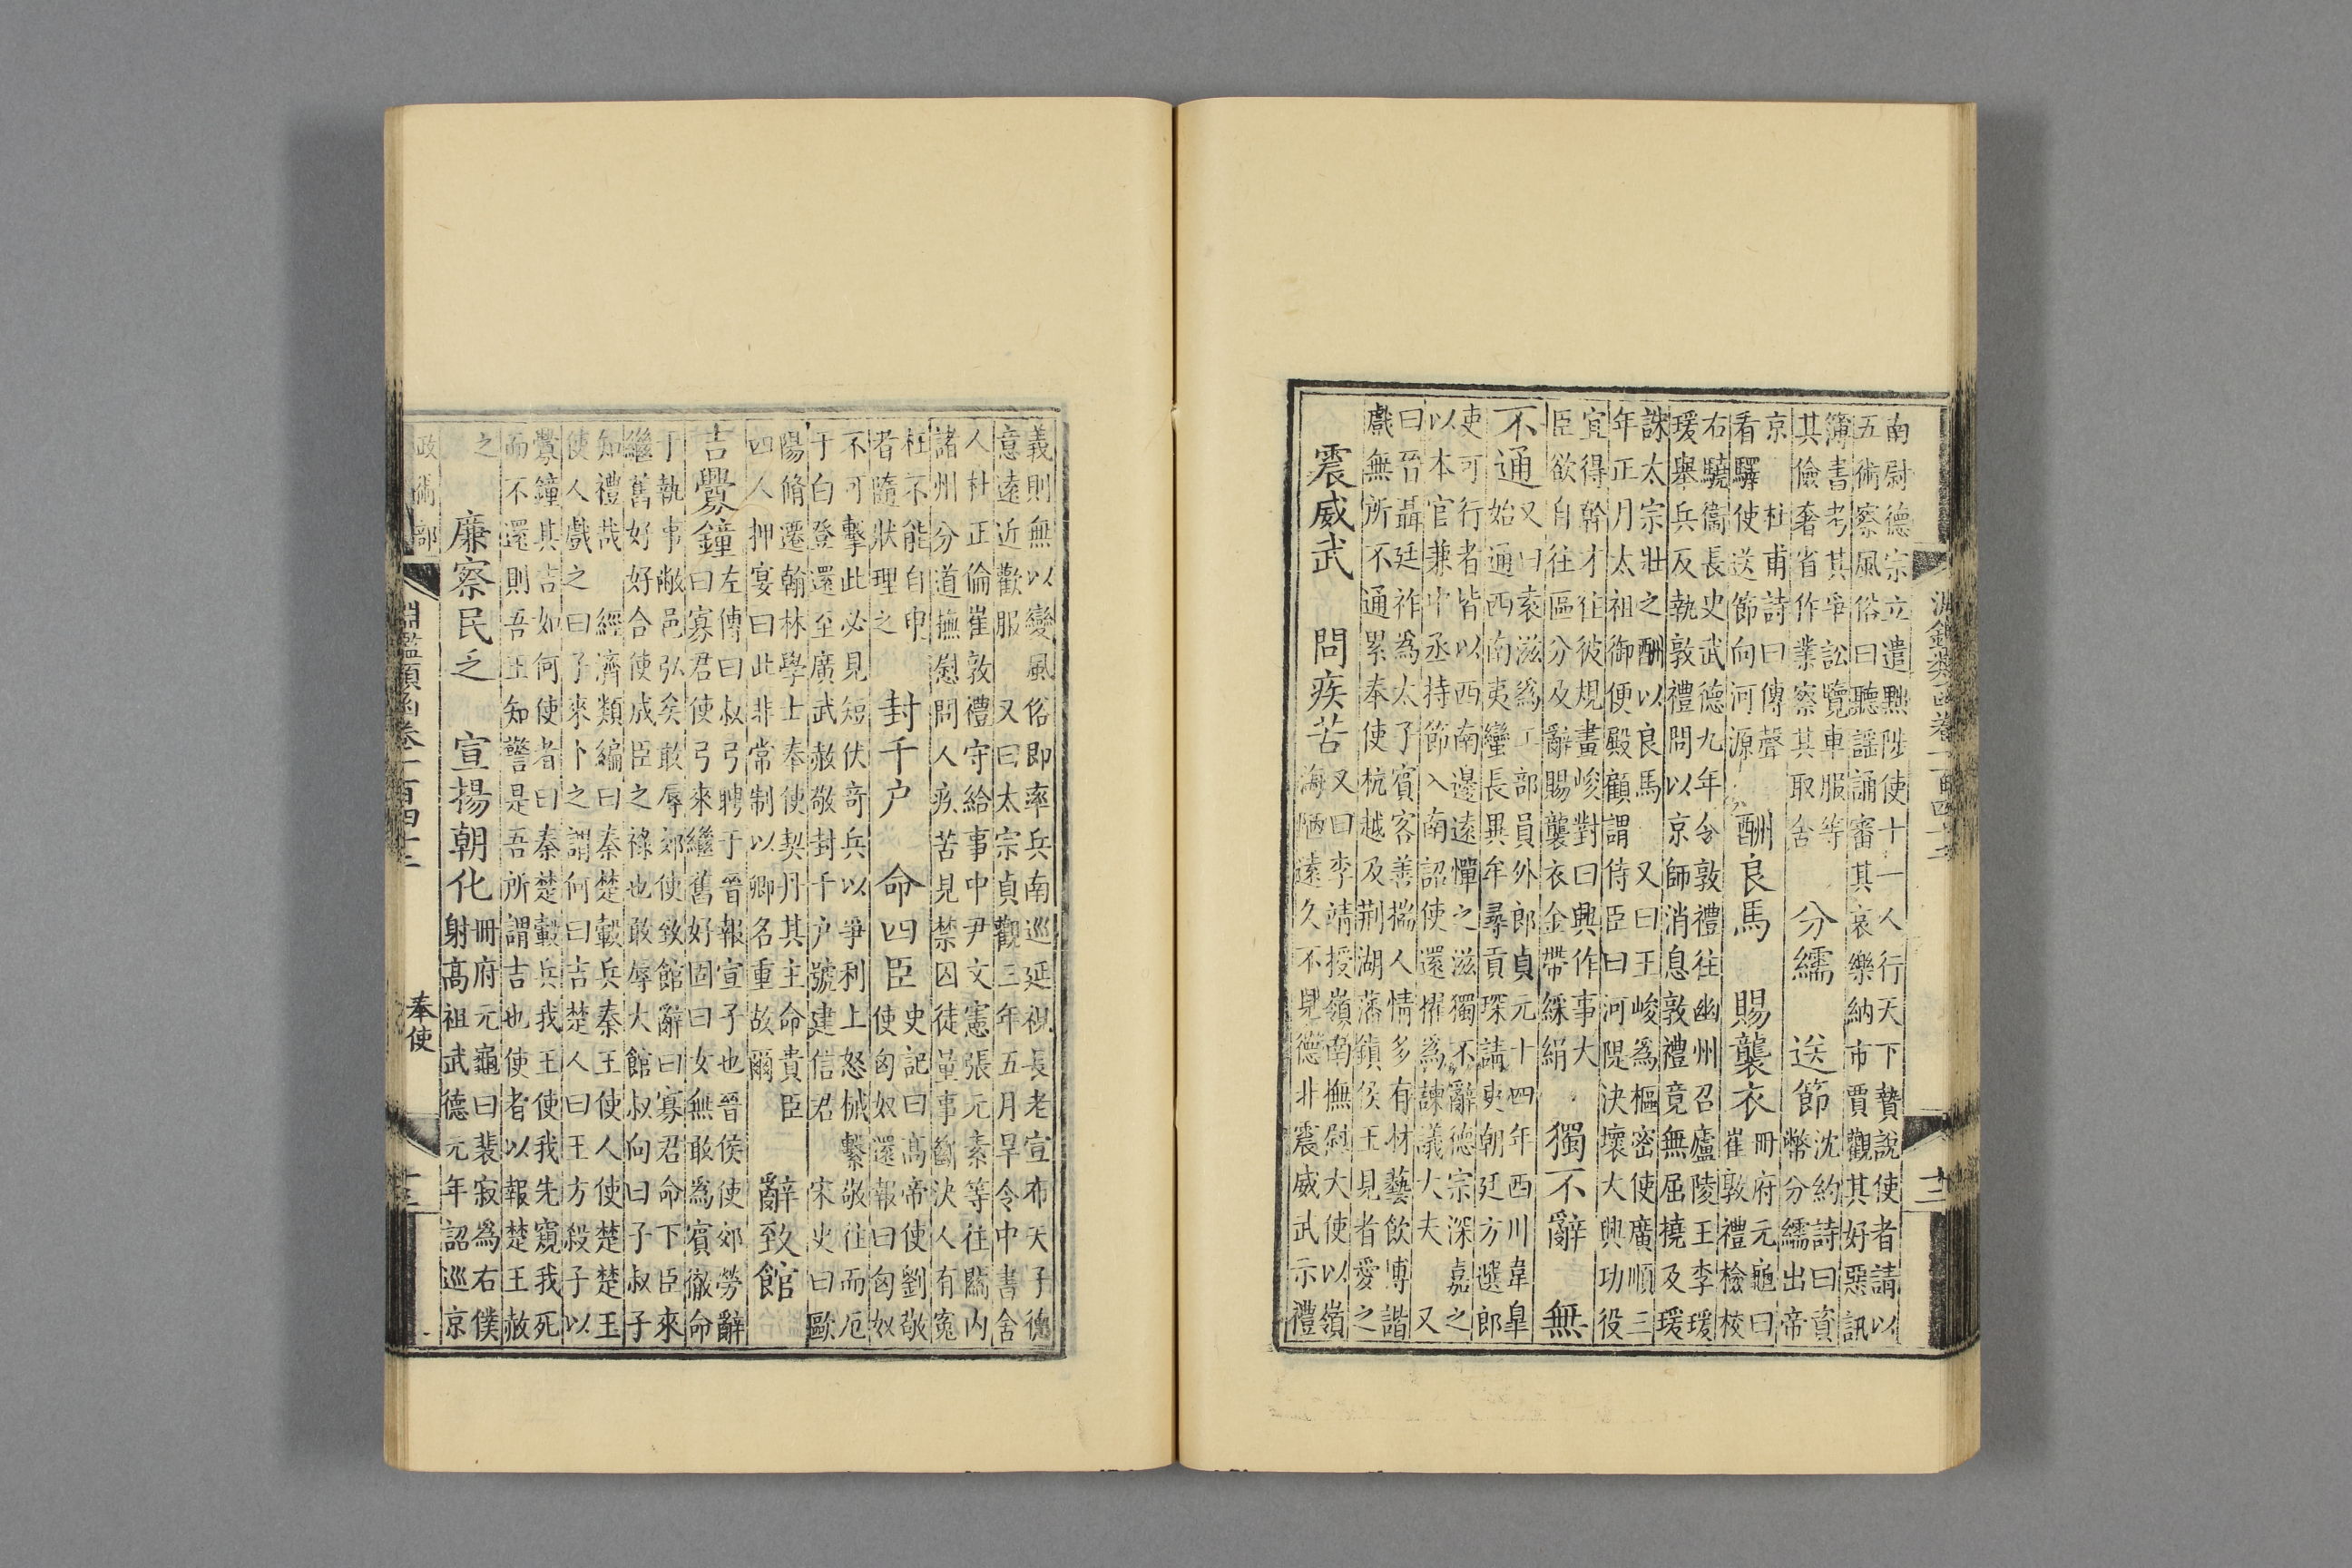 南尉德宗立遣黜陟使十一人行天下贄說使者請以
五術察風俗曰聽謠誦審其哀樂納市賈觀其好惡訊
簿書考其爭訟覽車服等
其儉奢省作業察其取舍
分繻　送節
沈約詩曰資
幣分繻出帝
京　杜甫詩曰傳聲
看驛使送節向河源
酬良馬　賜襲衣
冊府元龜曰
崔敦禮檢校
右驍衞長史武德九年令敦禮往幽州召廬陵王李瑗
瑗舉兵反執敦禮問以京師消息敦禮竟無屈撓及瑗
誅太宗壯之酬以良馬　又曰王峻爲樞密使廣順三
年正月太祖御便殿顧謂侍臣曰河隄決壞大興功役
宜得幹才往彼規畫峻對曰興作事大
臣欲自往區分及辭賜襲衣金帶綵絹
獨不辭　無
不通
又曰袁滋爲工部員外郎貞元十四年西川韋皐
始通西南夷蠻長異牟尋貢琛請吏朝廷方選郎
吏可行者皆以西南邊遠憚之滋獨不辭德宗深嘉之
以本官兼中丞持節入南詔使還擢爲諫議大夫　又
曰晉聶廷祚爲太子賓客善揣人情多有材藝飲博諧
戲無所不通累奉使杭越及荆湖藩鎮侯王見者愛之
震威武　問疾苦
又曰李靖授嶺南撫慰大使以嶺
海陋遠久不見德非震威武示禮
淵鑑類函卷一百四十二
義則無以變風俗即率兵南巡延視長老宣布天子德
意遠近歡服　又曰太宗貞觀三年五月旱令中書舍
人杜正倫崔敦禮守給事中尹文憲張元素等往關内
諸州分道撫慰問人疾苦見禁囚徒量事斷決人有寃
枉不能自申
者隨狀理之
封千户　命四臣
史記曰高帝使劉敬
使匈奴還報曰匈奴
不可擊此必見短伏奇兵以爭利上怒械繫敬往而厄
于白登還至廣武赦敬封千户號建信君　宋史曰歐
陽脩遷翰林學士奉使契丹其主命貴臣
四人押宴曰此非常制以卿名重故爾
辭致館
吉釁鐘
左傳曰叔弓聘于晉報宣子也晉侯使郊勞辭
曰寡君使弓來繼舊好固曰女無敢爲賓徹命
于執事敝邑弘矣敢辱郊使致館辭曰寡君命下臣來
繼舊好好合使成臣之祿也敢辱大館叔向曰子叔子
知禮哉　經濟類編曰秦楚轂兵秦王使人使楚楚王
使人戲之曰子來卜之謂何曰吉楚人曰王方殺子以
釁鐘其吉如何使者曰秦楚轂兵我王使我先窺我死
而不還則吾王知警是吾所謂吉也使者以報楚王赦
之
廉察民乏　宣揚朝化
冊府元龜曰裴寂爲右僕
射高祖武德元年詔巡京
政術部
淵鑑類函卷一百四十二
奉使